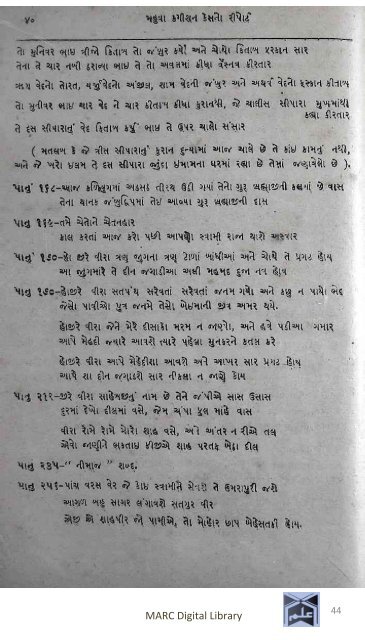 ૪૦ મહુવા કમીશન કેસનો રીપોર્ટ
તો મુનિવર ભાઇ ત્રીજો કિતાબ તે જંબુર કહેા અને ચેાથો કિતાબ ફરકાન સાર
તેના તે ચાર નબી ઠરાવ્યા ભાઇ તે તો અવલમાં કીધા વૈસ્નવ કીરતાર
રૂગ વેદનો તોરત, યર્જુવેદનો અંજીલ, શામ વેદની જંબુર અને અથર્વ વેદનો ફરકાન કીતાબ
તો મુનીવર ભાઇ ચાર વેદ ને ચાર કીતાબ કીધા કુરાનથી, જે ચાલીસ સીપારા મુખમાંથી
કહ્યા કીરતાર
તે દસ સીપારાનું વેદ કિતાબ કર્યું ભાઇ તે ઉપર ચાલો સંસાર
( મતલબ કે જે ત્રીસ સીપારાનું કુરાન દુન્યામાં આજ ચાલે છે તે કાંઇ કામનું નથી,
અને જે ખરો ઇલમ તે દસ સીપારા જુદા ઇમામના ઘરમાં રહ્યા છે તેમાં જણાવેલો છે ).
પાનું ૧૬૮-આજ કળિયુગમાં અડસઠ તીરથ ઉઠી ગયાં તેનો ગુરૂ બ્રહ્માજીની કાયામાં છે વાસ
તેના થાનક જંબુદિપમાં તેઇ આવ્યા ગુરૂ બ્રહ્માજીની દાસ
પાનું ૧૬૯-તમે ચેતોને ચેતનહાર
કાલ કરતાં આજ કરો પછી આપણો સ્વામી રાજ થાશે અસવાર
પાનું ૧૭૦-હો જીરે વીરા ત્રણ જુગના ત્રણ ટોળાં બાંધીઆં અને ચોથે તે પ્રગટ હોય
આ જુગમાંહે તે દીન જગાડીઆ અલી મહમદ દુજા નવ હોય
પાનું ૧૭૦-હોજીરે વીરા સતપંથ સરેવતાં સરેવતાં જનમ ગયો અને કછુ ન પાયો ભેદ
જેસે પાવીઓ પુત્ર જનમે તેસે બેઇમાની જીવ અમર થયે.
હોજીરે વીરા જેને મેરે દીસાકો મરમ ન જાણ્યો, અને હવે પડીઆ ગમાર
આપે મેહદી જ્યારે આવશે ત્યારે પહેલા મુનકરને કતલ કરે
હોજીરે વીરા આપે મેહેદીશા આવશે અને આખર સાર પ્રગટ હોય
આપે શા દીન જગાડશે સાર નીકલા ન જાણે કોય
પાનું ૨૧૨-જીરે વીરા સાહેબજીનું નામ છે તેને જંપીએ સાસ ઉસાસ
દુરમાં દેખો દીલમાં વસે, જેમ ચંપા ફુલ માંહે વાસ
વીરા રોમે રોમે મોરો શાહ વસે, અને અંતર નહીં એ તલ
એવો જાણીને ભકતાઇ કીજીએ શાહ પરતક બેઠા દીલ
પાનું ૨૩૫-“ નીમાજ ” શબ્દ.
પાનું ૨૫૬-પાંચ વરસ વેર જે કોઇ સ્વામીને સેવશે તે અમરાપુરી જશે
આગળ બહુ સાગર લંગાવશે સતગુર વીર
એજી એ શાહપીર જો પામીએ, તો મોહોર છાપ બેહેસતકી હોય.
MARC Digital Library
44